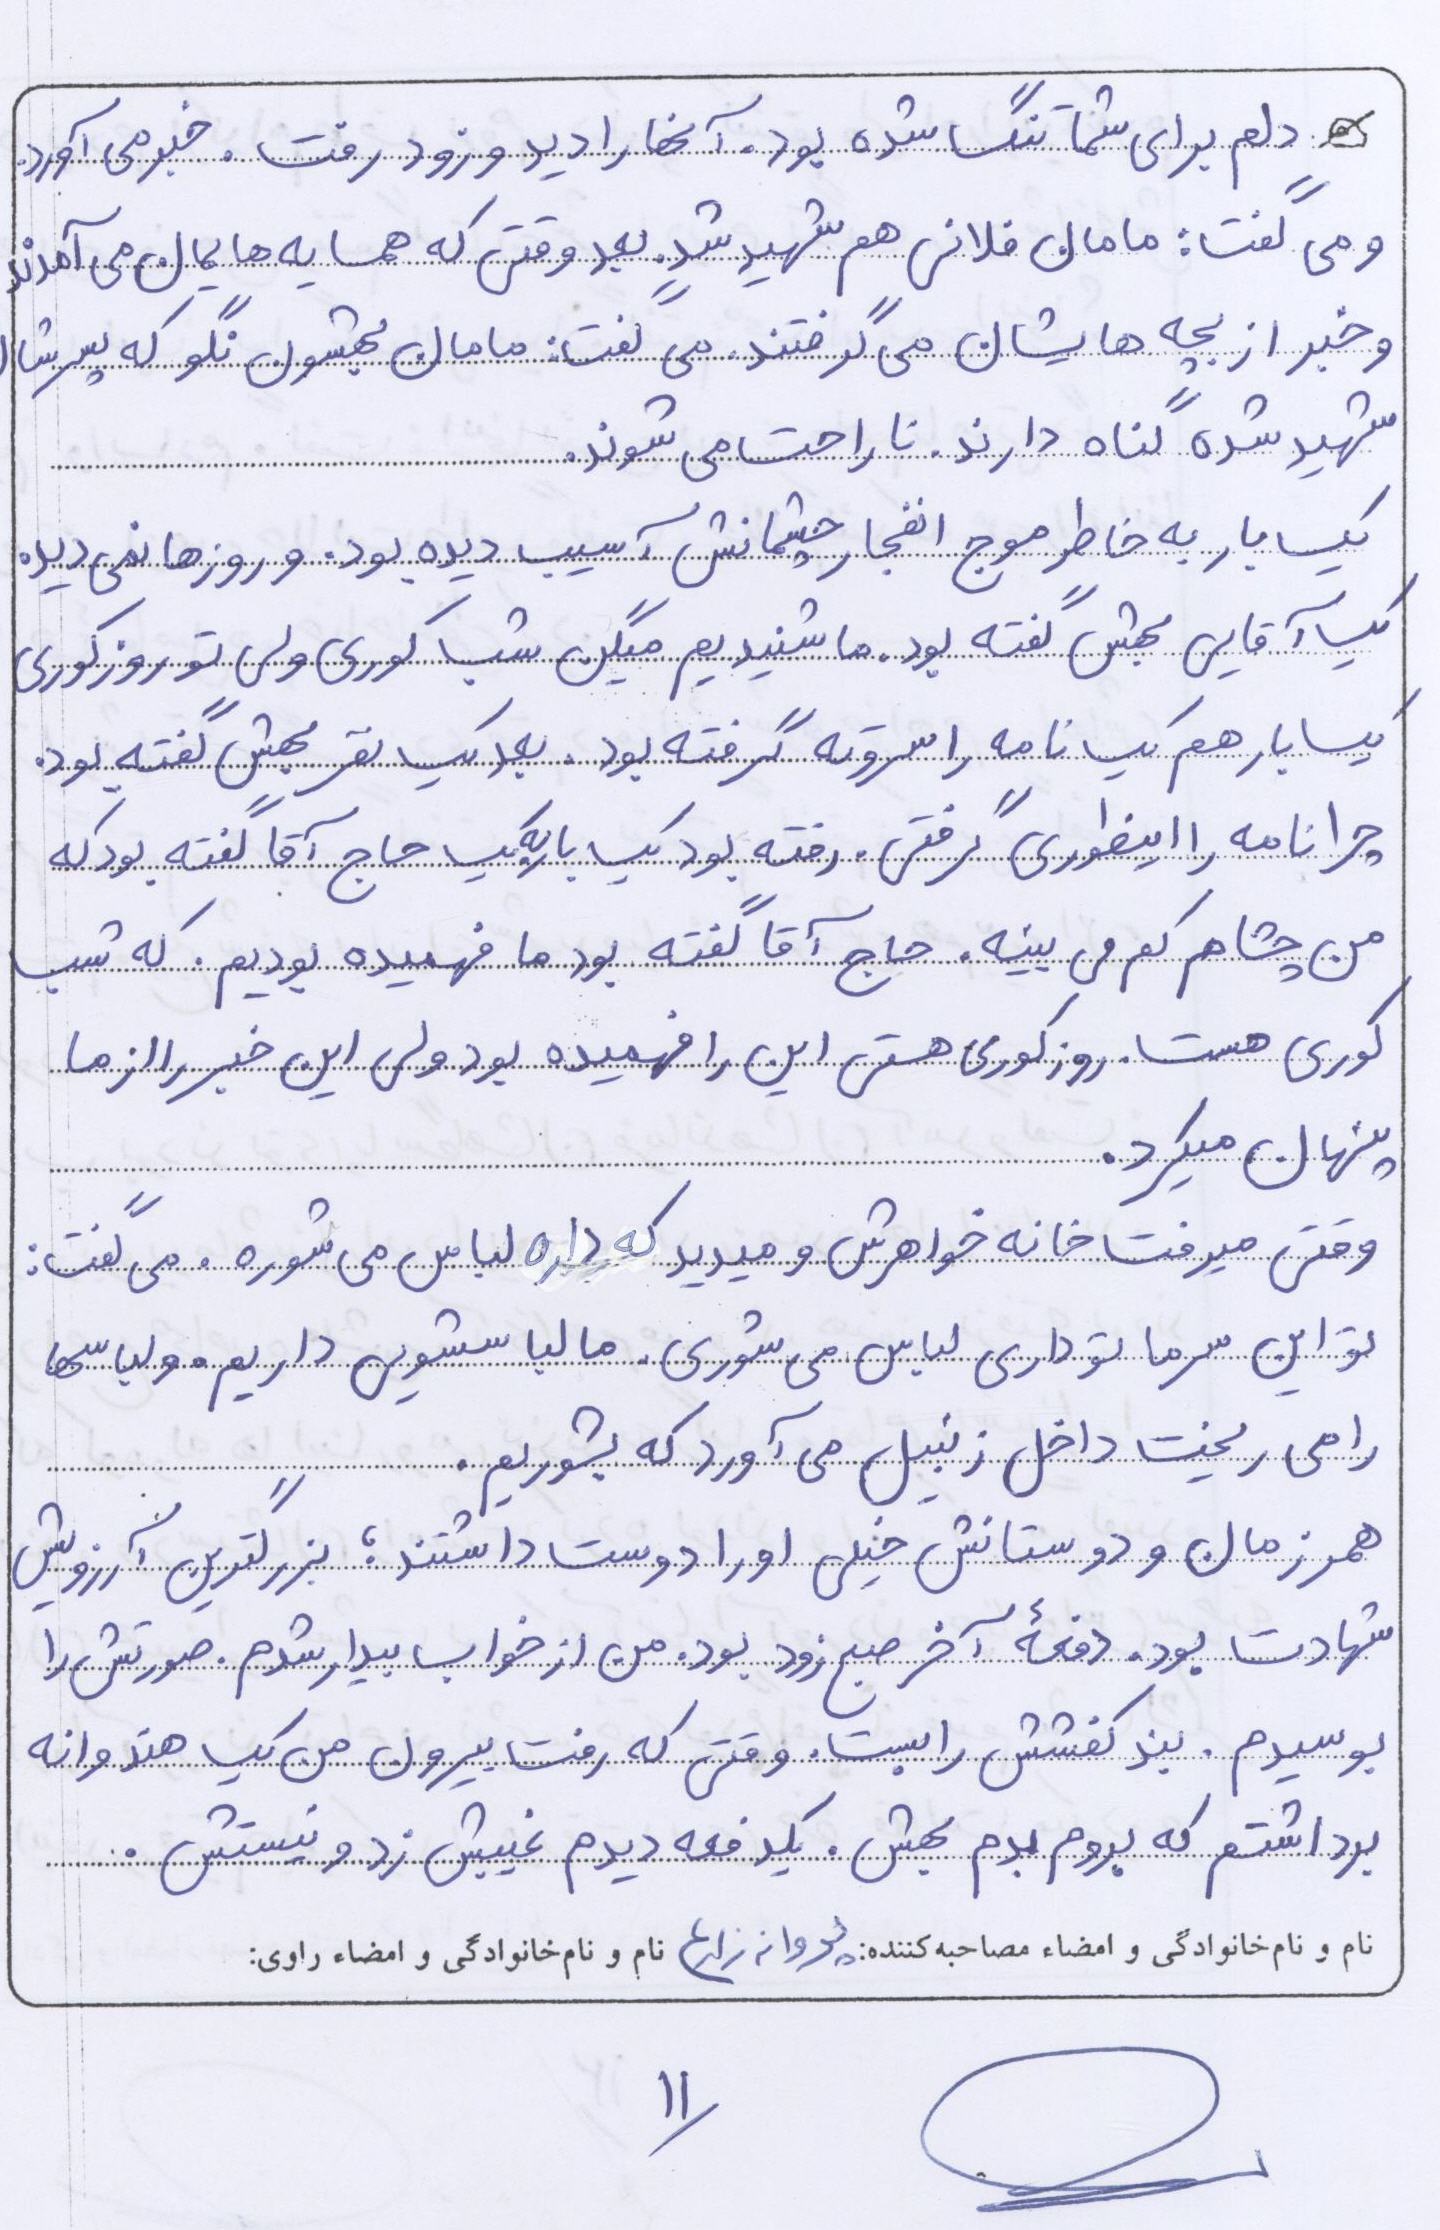 دلم برای شما تنگ شده بود. آنها را دید و زود رفت. خبر می آورد.
و می گفت: مامان فلانی هم شهید شد. بعد وقتی که همسایه هایمان می آمدند
و خبر از بچه هایشان می گرفتند. می گفت: مامان بهشون نگو که پسرشان
شهید شده گناه دارند. ناراحت می شوند.
یک بار به خاطر موج انفجار چشمانش آسیب دیده بود. و روزها نمی دیده
یک آقایی بهش گفته بود. ما شنیدیم میگن شب کوری ولی تو روز کوری
یک بار هم یک نامه را سروته گرفته بود. بعد یک نفر بهش گفته بود.
چرا نامه را اینطوری گرفتی. رفته بود یک بار به یک حاج آقا گفته بود که
من چشام کم می بینه. حاج آقا گفته بود ما فهمیده بودیم. که شب
کوری هست. روز کوری هستی این را فهمیده بود ولی این خبر را از ما
پنهان میکرد.
وقتی میرفت خانه خواهرش و میدید که داره لباس می شوره. می گفت:
تو این سرما تو داری لباس می شوری. ما لباسشویی داریم. و لباسها
را می ریخت داخل زنبیل می آورد که بشوریم.
همرزمان و دوستانش خیلی او را دوست داشتند؛ بزرگترین آرزویش
شهادت بود. دفعهٔ آخر صبح زود بود. من از خواب بیدار شدم. صورتش را
بوسیدم. بند کفشش را بست. وقتی که رفت بیرون من یک هندوانه
برداشتم که بروم بدم بهش. یکدفعه دیدم غیبش زد و نیستش.
نام و نام‌خانوادگی و امضاء مصاحبه‌کننده: پروانه زارع نام و نام‌خانوادگی و امضاء راوی:
۱۱